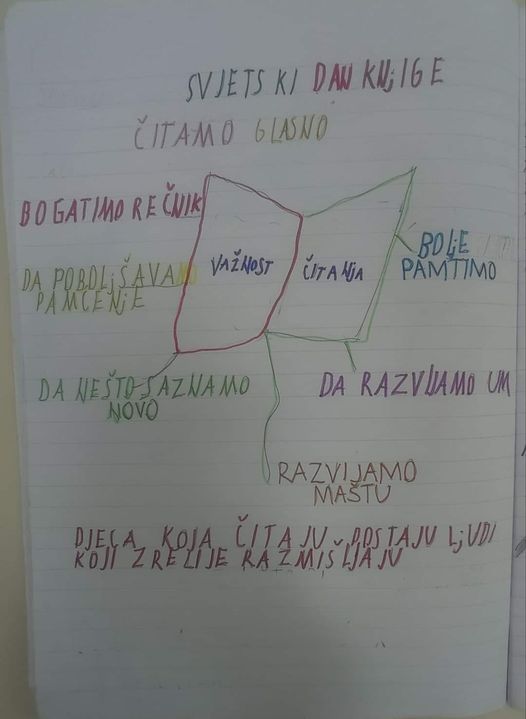 SVJETSKI DAN KNjIGE
ČITAMO GLASNO
BOGATIMO REČNIK
VAŽNOST
ČITANjA
BOLjE
PAMTIMO
DA POBOLjŠAVAMO
PAMĆENjE
DA NEŠTO SAZNAMO
NOVO
DA RAZVIJAMO UM
RAZVIJAMO
MAŠTU
DJECA KOJA ČITAJU POSTAJU LjUDI
KOJI ZRELIJE RAZMIŠLJAJU